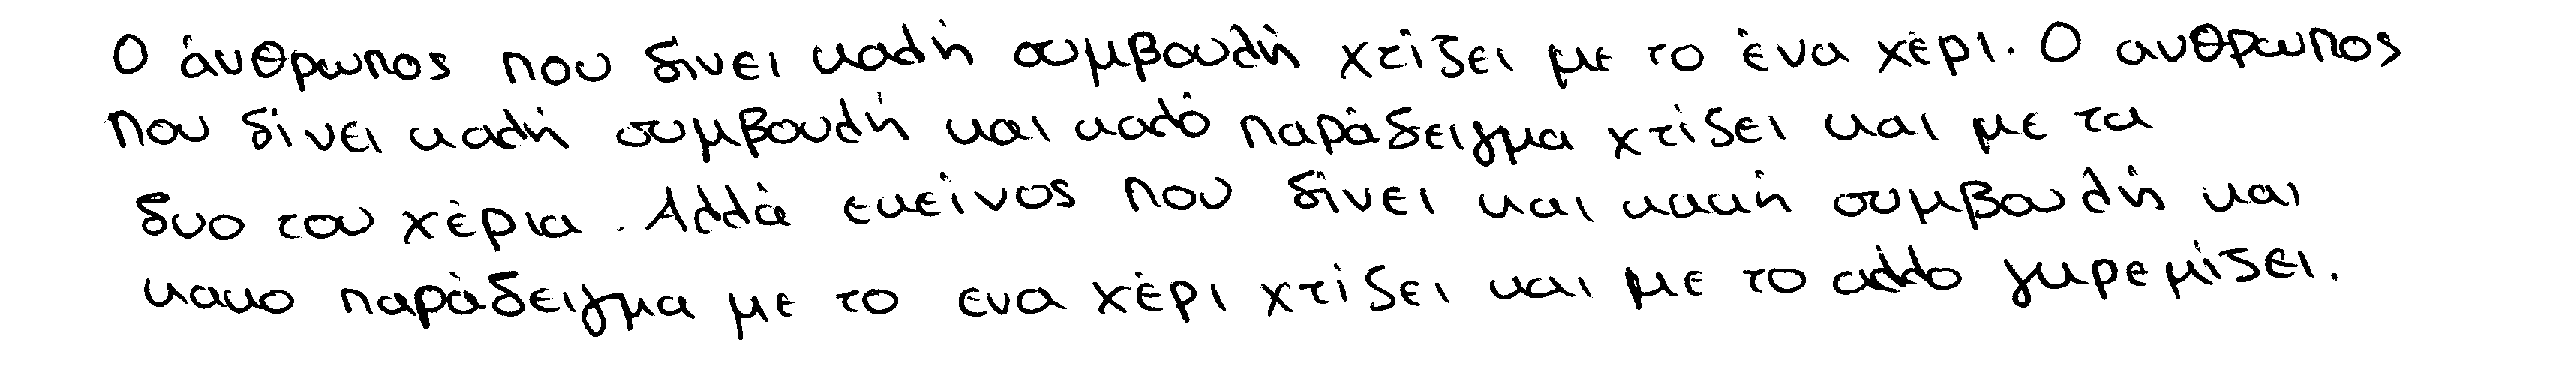 Ο άνθρωπος που δίνει καλή συμβουλή χτίζει με το ένα χέρι. Ο ανθρωπος
που δίνει καλή συμβουλή και καλό παράδειγμα χτίζει και με τα
δυο του χέρια. Αλλά εκείνος που δίνει και κακή συμβουλή και
κακο παράδειγμα με το ενα χέρι χτίζει και με το αλλο γκρεμίζει.